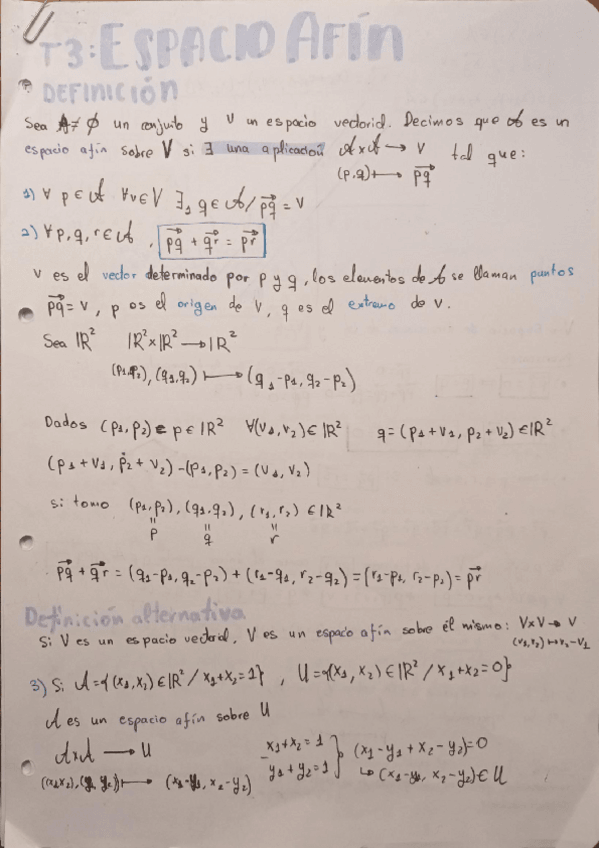 T3: ESPACIO AFÍN
DEFINICIÓN
Sea A ≠ ∅ un conjunto y V un espacio vectorial. Decimos que A es un
espacio afín sobre V si ∃ una aplicación A×A → V tal que:
(p,q) ↦ p⃗q⃗
1) ∀ p ∈ A ∀v ∈ V ∃₁ q ∈ A / p⃗q⃗ = v
2) ∀ p, q, r ∈ A, p⃗q⃗ + q⃗r⃗ = p⃗r⃗
v es el vector determinado por p y q, los elementos de A se llaman puntos
p⃗q⃗ = v, p es el origen de v, q es el extremo de v.
Sea ℝ² ℝ²×ℝ² → ℝ²
(p₁,p₂), (q₁,q₂) ↦ (q₁-p₁, q₂-p₂)
Dados (p₁, p₂) = p ∈ ℝ² ∀(v₁, v₂) ∈ ℝ² q = (p₁ + v₁, p₂ + v₂) ∈ ℝ²
(p₁ + v₁, p₂ + v₂) - (p₁, p₂) = (v₁, v₂)
si tomo (p₁, p₂), (q₁, q₂), (r₁, r₂) ∈ ℝ²
= = =
p q r
p⃗q⃗ + q⃗r⃗ = (q₁-p₁, q₂-p₂) + (r₁-q₁, r₂-q₂) = (r₁-p₁, r₂-p₂) = p⃗r⃗
Definición alternativa
Si V es un espacio vectorial, V es un espacio afín sobre él mismo: V×V → V
(v₁, v₂) ↦ v₂-v₁
3) Si A = {(x₁, x₂) ∈ ℝ² / x₁+x₂ = 1}, U = {(x₁, x₂) ∈ ℝ² / x₁+x₂ = 0}
A es un espacio afín sobre U
A×A → U x₁+x₂ = 1 } (x₁-y₁ + x₂-y₂) = 0
(x₁x₂), (y₁, y₂) ↦ (x₁-y₁, x₂-y₂) - y₁+y₂ = 1 ↳ (x₁-y₁, x₂-y₂) ∈ U